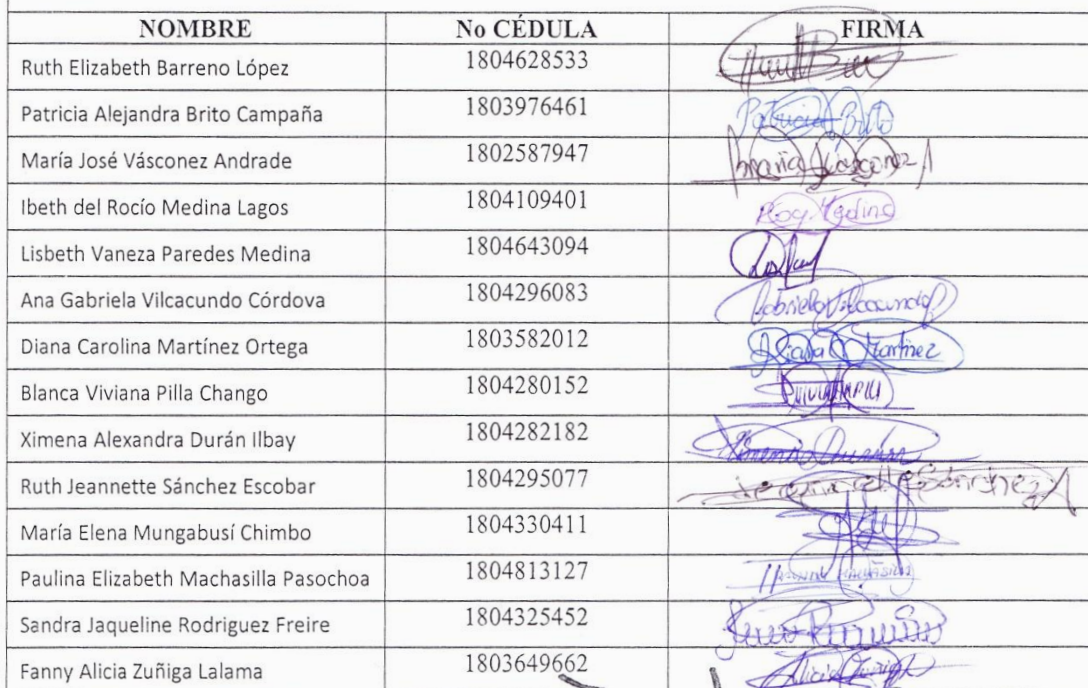 NOMBRE No CÉDULA FIRMA
Ruth Elizabeth Barreno López 1804628533
Patricia Alejandra Brito Campaña 1803976461 Patricia Brito
María José Vásconez Andrade 1802587947 María Vásconez A
Ibeth del Rocío Medina Lagos 1804109401 Medina
Lisbeth Vaneza Paredes Medina 1804643094
Ana Gabriela Vilcacundo Córdova 1804296083 Gabriela Vilcacundo
Diana Carolina Martínez Ortega 1803582012 Diana Martinez
Blanca Viviana Pilla Chango 1804280152
Ximena Alexandra Durán Ilbay 1804282182 Ximena Duran
Ruth Jeannette Sánchez Escobar 1804295077
María Elena Mungabusí Chimbo 1804330411
Paulina Elizabeth Machasilla Pasochoa 1804813127
Sandra Jaqueline Rodriguez Freire 1804325452
Fanny Alicia Zuñiga Lalama 1803649662 Alicia